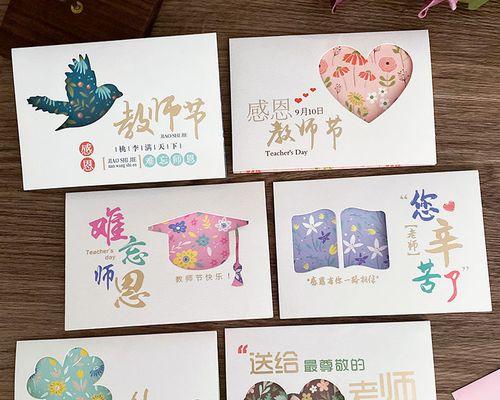 教师节
JIAO SHI JIE
感恩
桃李满天下
JIAO SHI JIE
nan wang shi en
难忘师恩
感恩
9月10日
教师节
Teacher's Day
难忘师恩
Teacher's day
教师节快乐！
"感恩有你一路相伴"
"您辛苦了"
[老师]
"送给 最尊敬的
老师